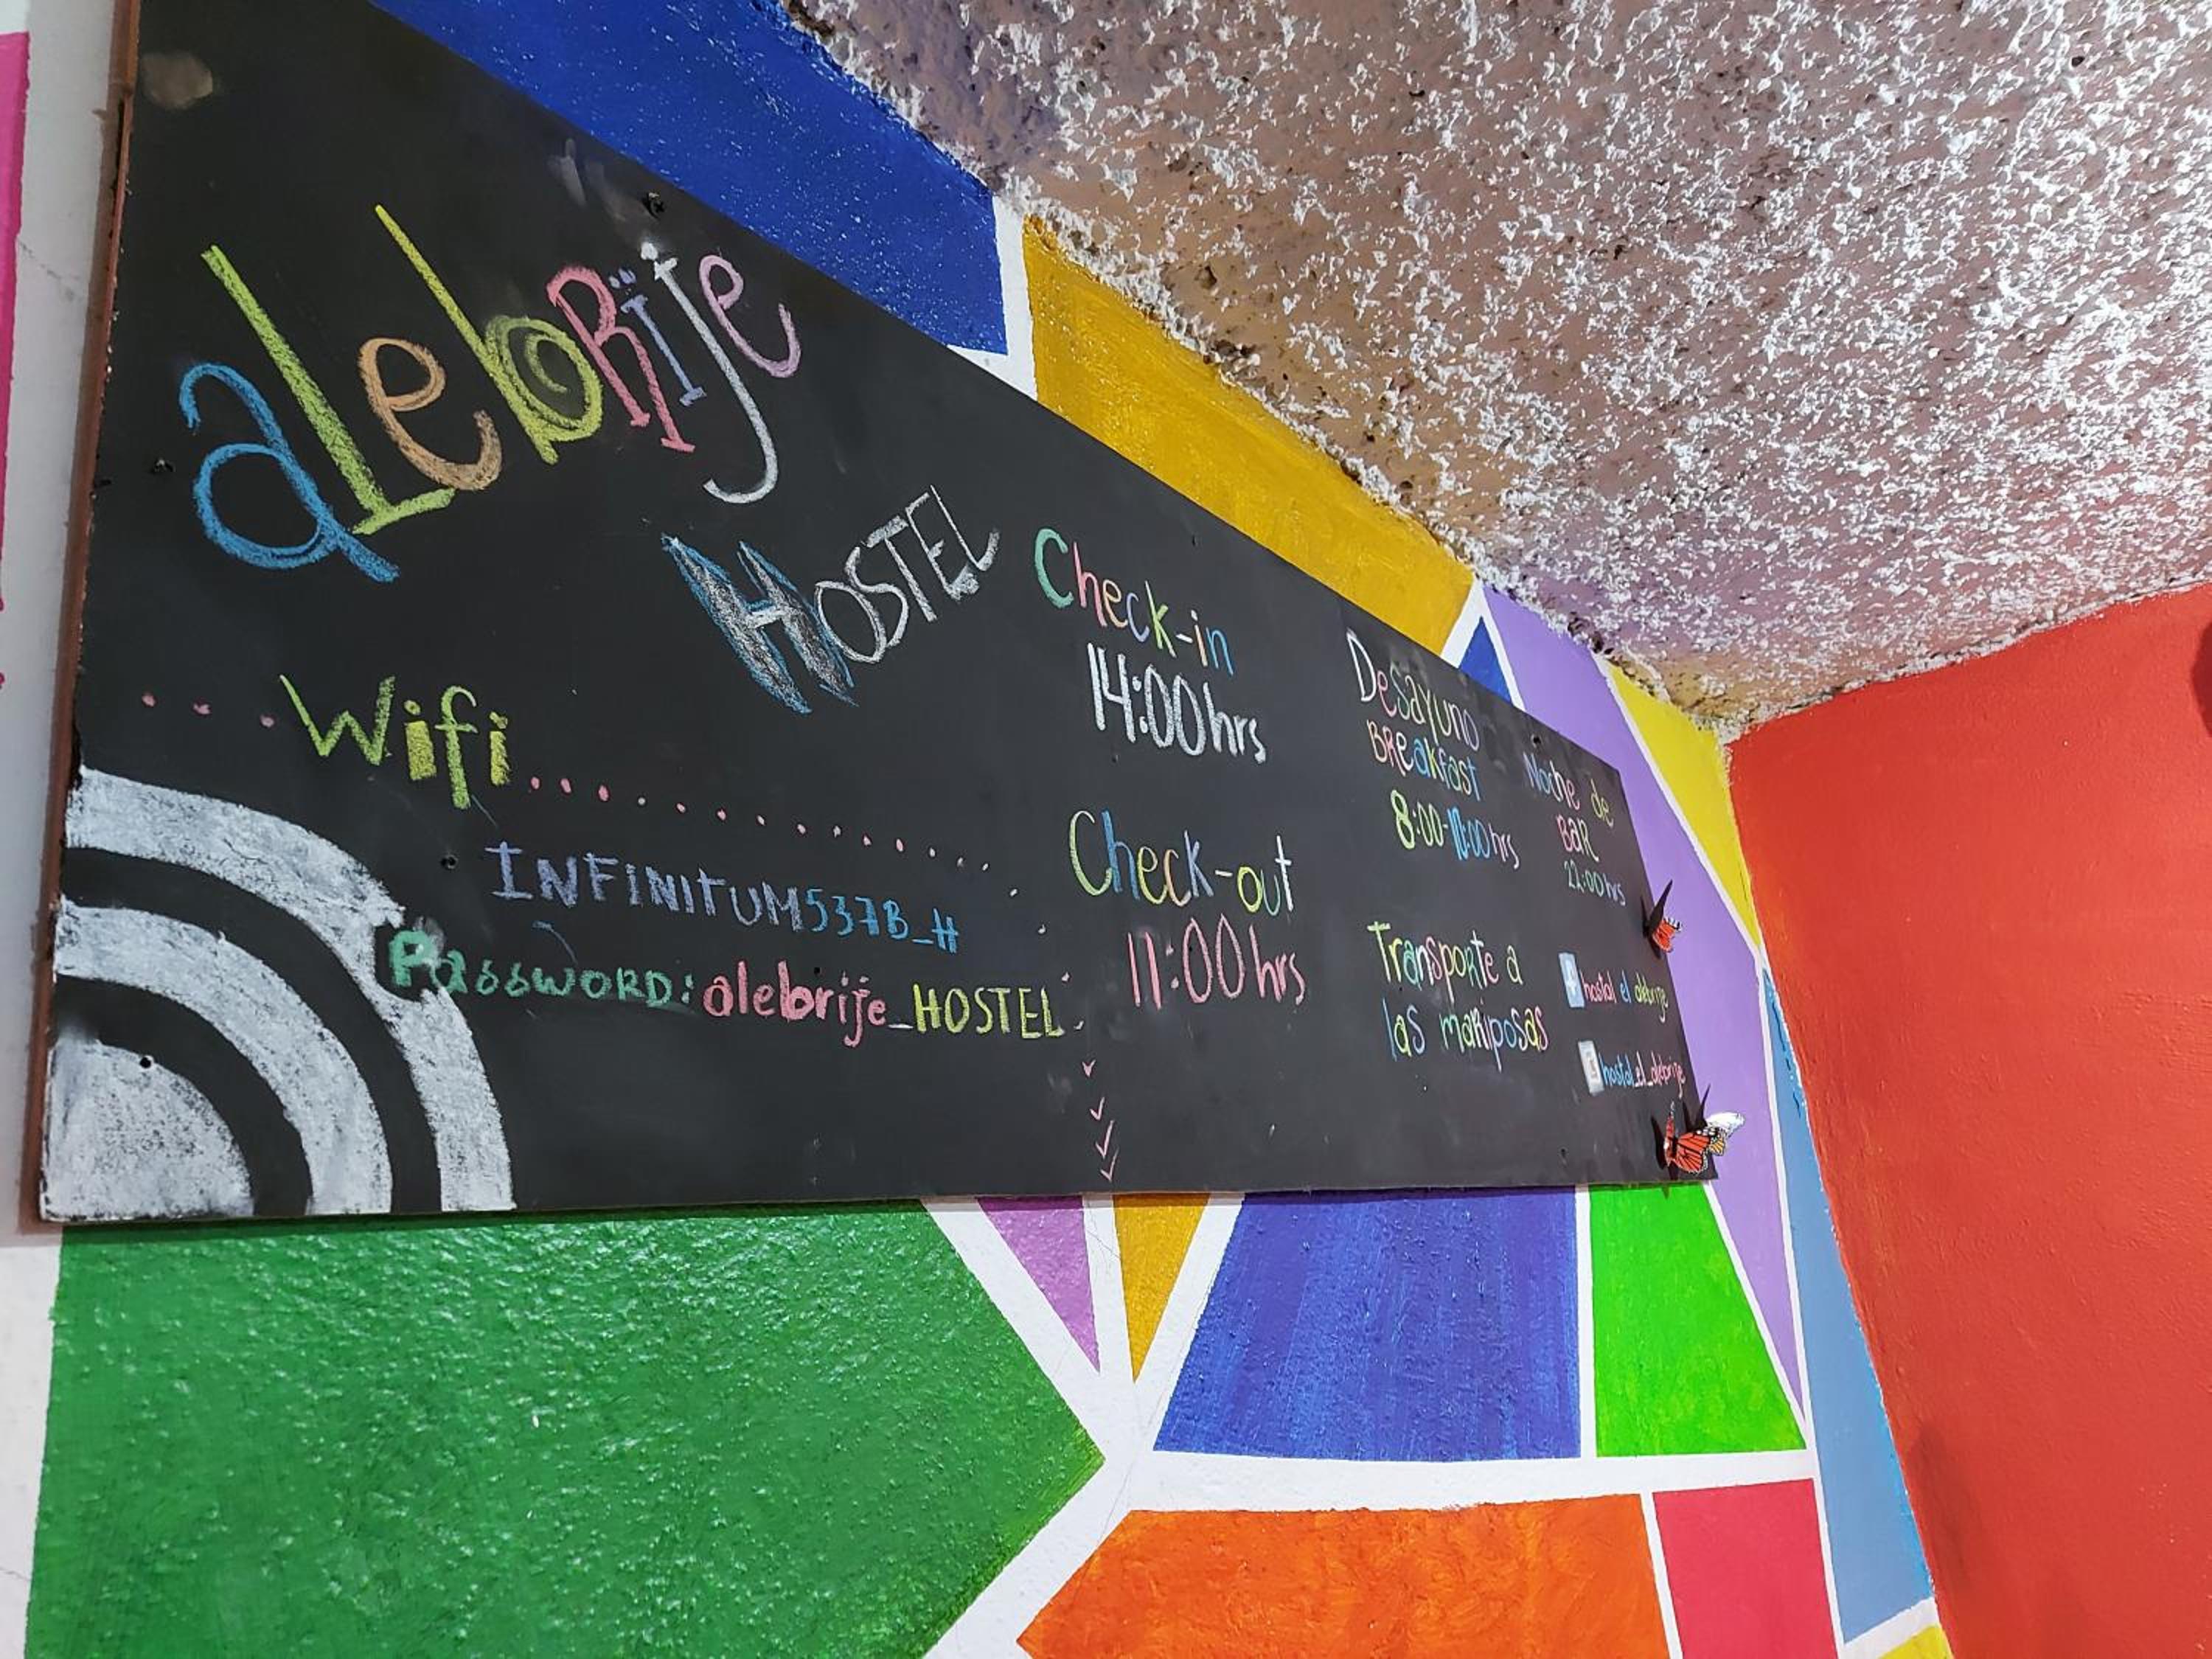 aLebRije
HOSTEL
Wifi
INFINITUM537B_H
PassWORD: alebrije_HOSTEL
Check-in
14:00hrs
Check-out
11:00hrs
Desayuno
BReakfast
8:00-10:00hrs
Transporte a
las maRiposas
Noche de
BaR
22:00hrs
hostal el alebrije
hostal_el_alebrije